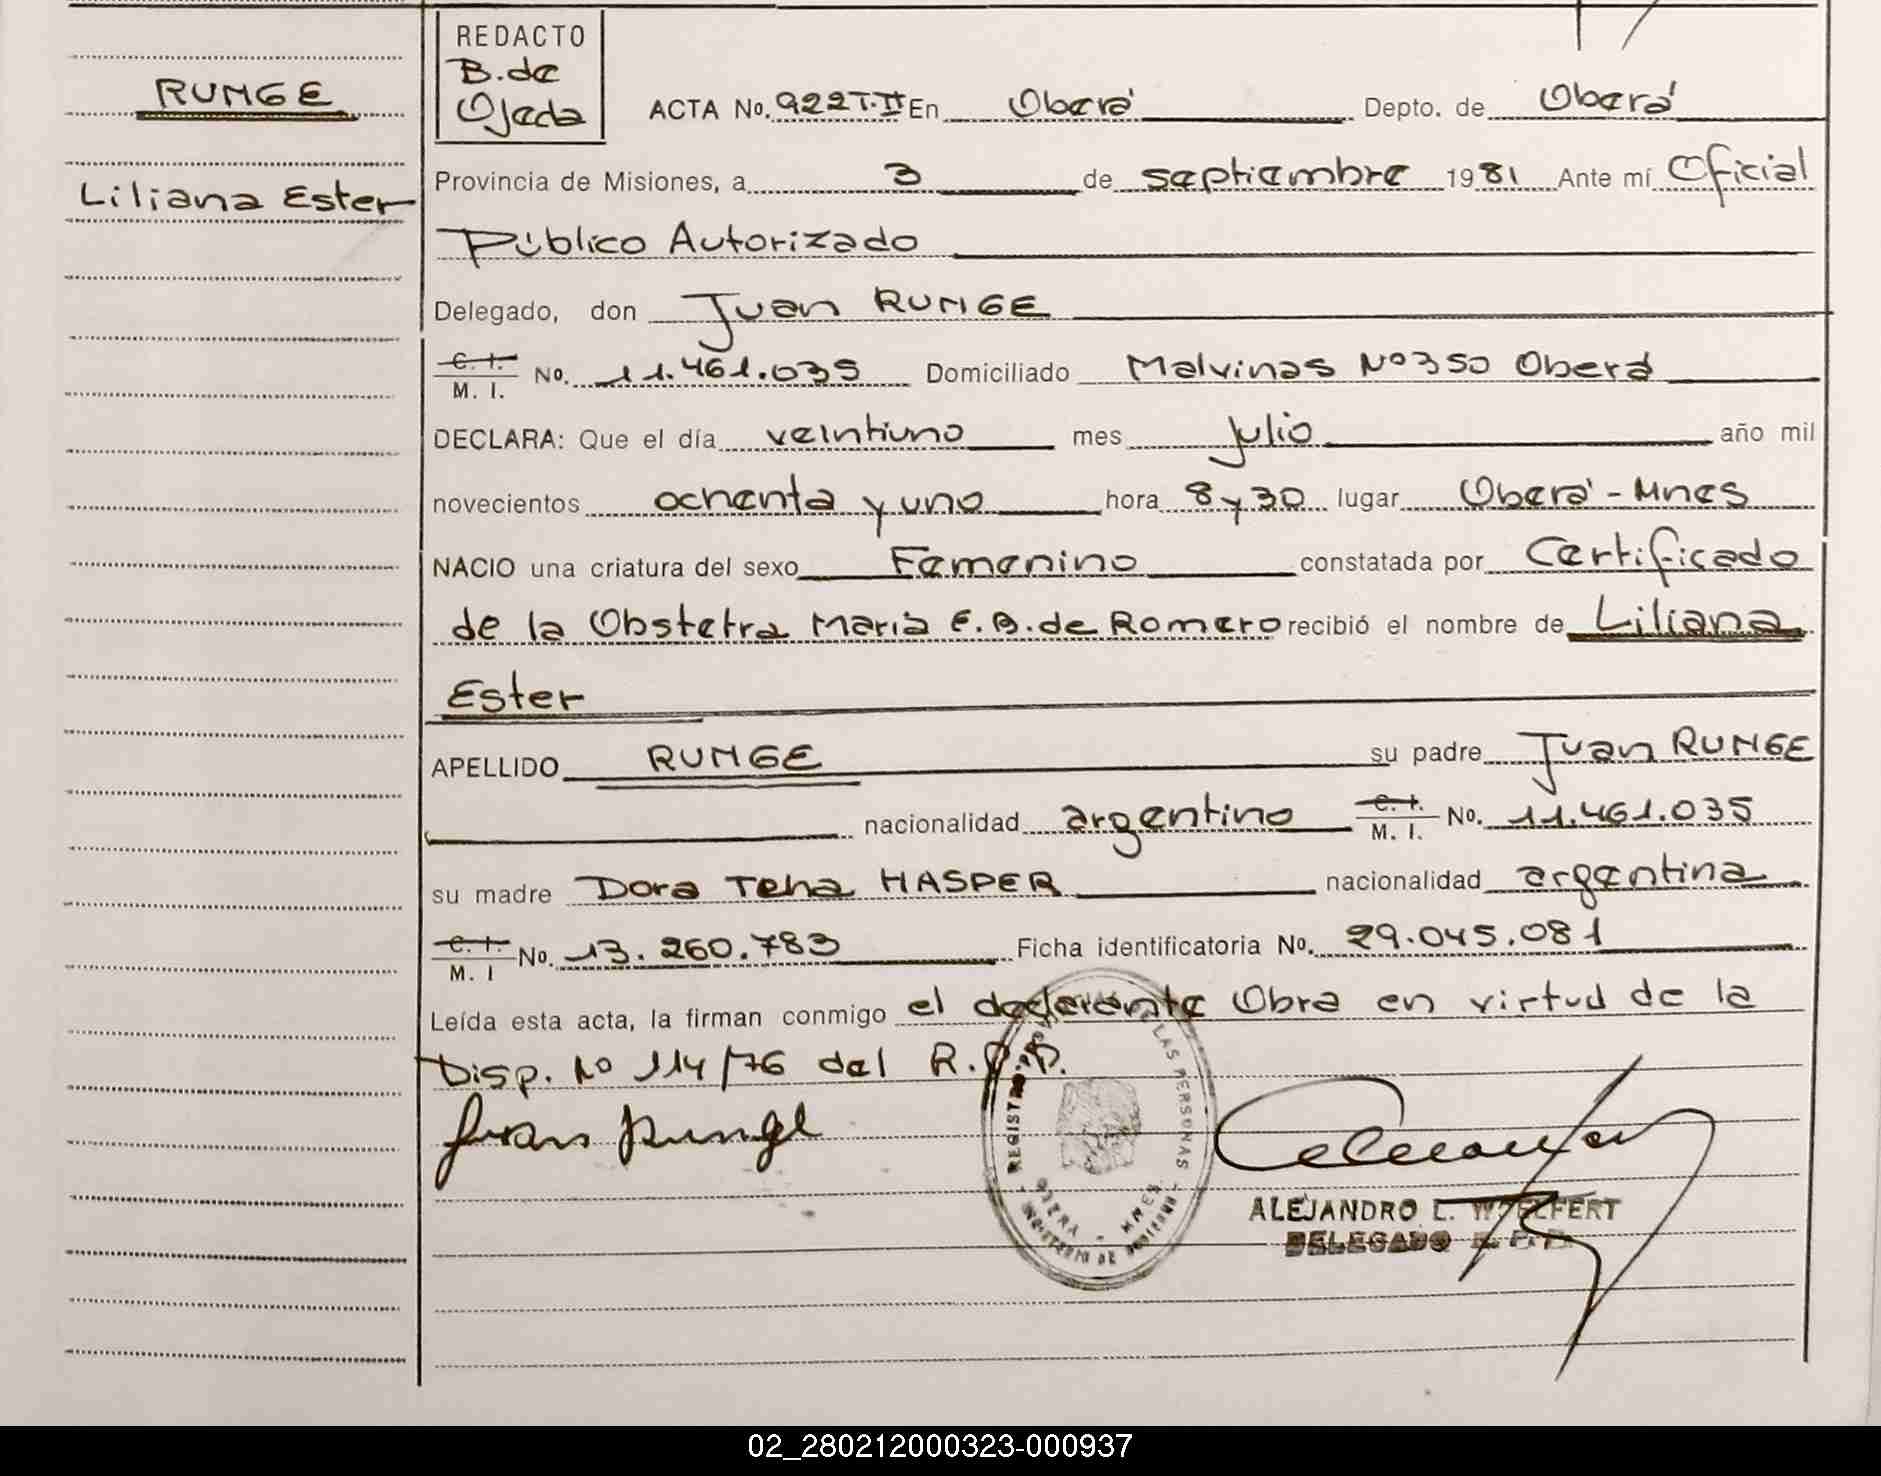 RUNGE
Liliana Ester
REDACTO
B. de
Ojeda
ACTA No. 922 T. II En Oberá Depto. de Oberá
Provincia de Misiones, a 3 de septiembre 1981 Ante mí Oficial
Público Autorizado
Delegado, don Juan RUNGE
C. I.
M. I. No. 11.461.035 Domiciliado Malvinas Nº 350 Oberá
DECLARA: Que el día veintiuno mes julio año mil
novecientos ochenta y uno hora 8 y 30 lugar Oberá - Mnes
NACIO una criatura del sexo Femenino constatada por Certificado
de la Obstetra María E. B. de Romero recibió el nombre de Liliana
Ester
APELLIDO RUNGE su padre Juan RUNGE
nacionalidad argentino C. I. M. I. No. 11.461.035
su madre Dora Tena HASPER nacionalidad argentina
C. I. M. I No. 13.260.783 Ficha identificatoria No. 29.045.081
Leída esta acta, la firman conmigo el declarante Obra en virtud de la
Disp. Nº 114/76 del R.P.P.
Juan Runge
REGISTRO LAS PERSONAS
OBERA - MNES
MINISTERIO DE GOBIERNO
ALEJANDRO L. WOELFERT
DELEGADO R. P. P.
02_280212000323-000937